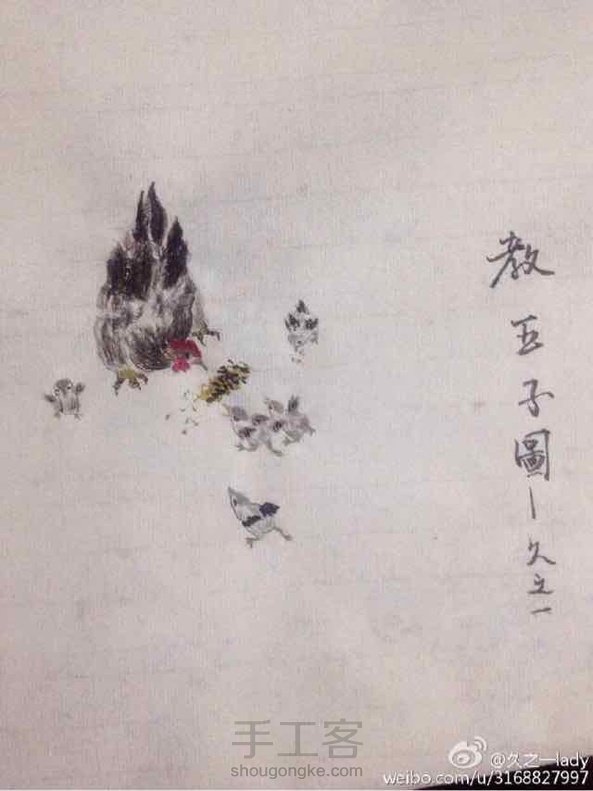 教五子圖—久之一
手工客
shougongke.com
@久之一lady
weibo.com/u/3168827997